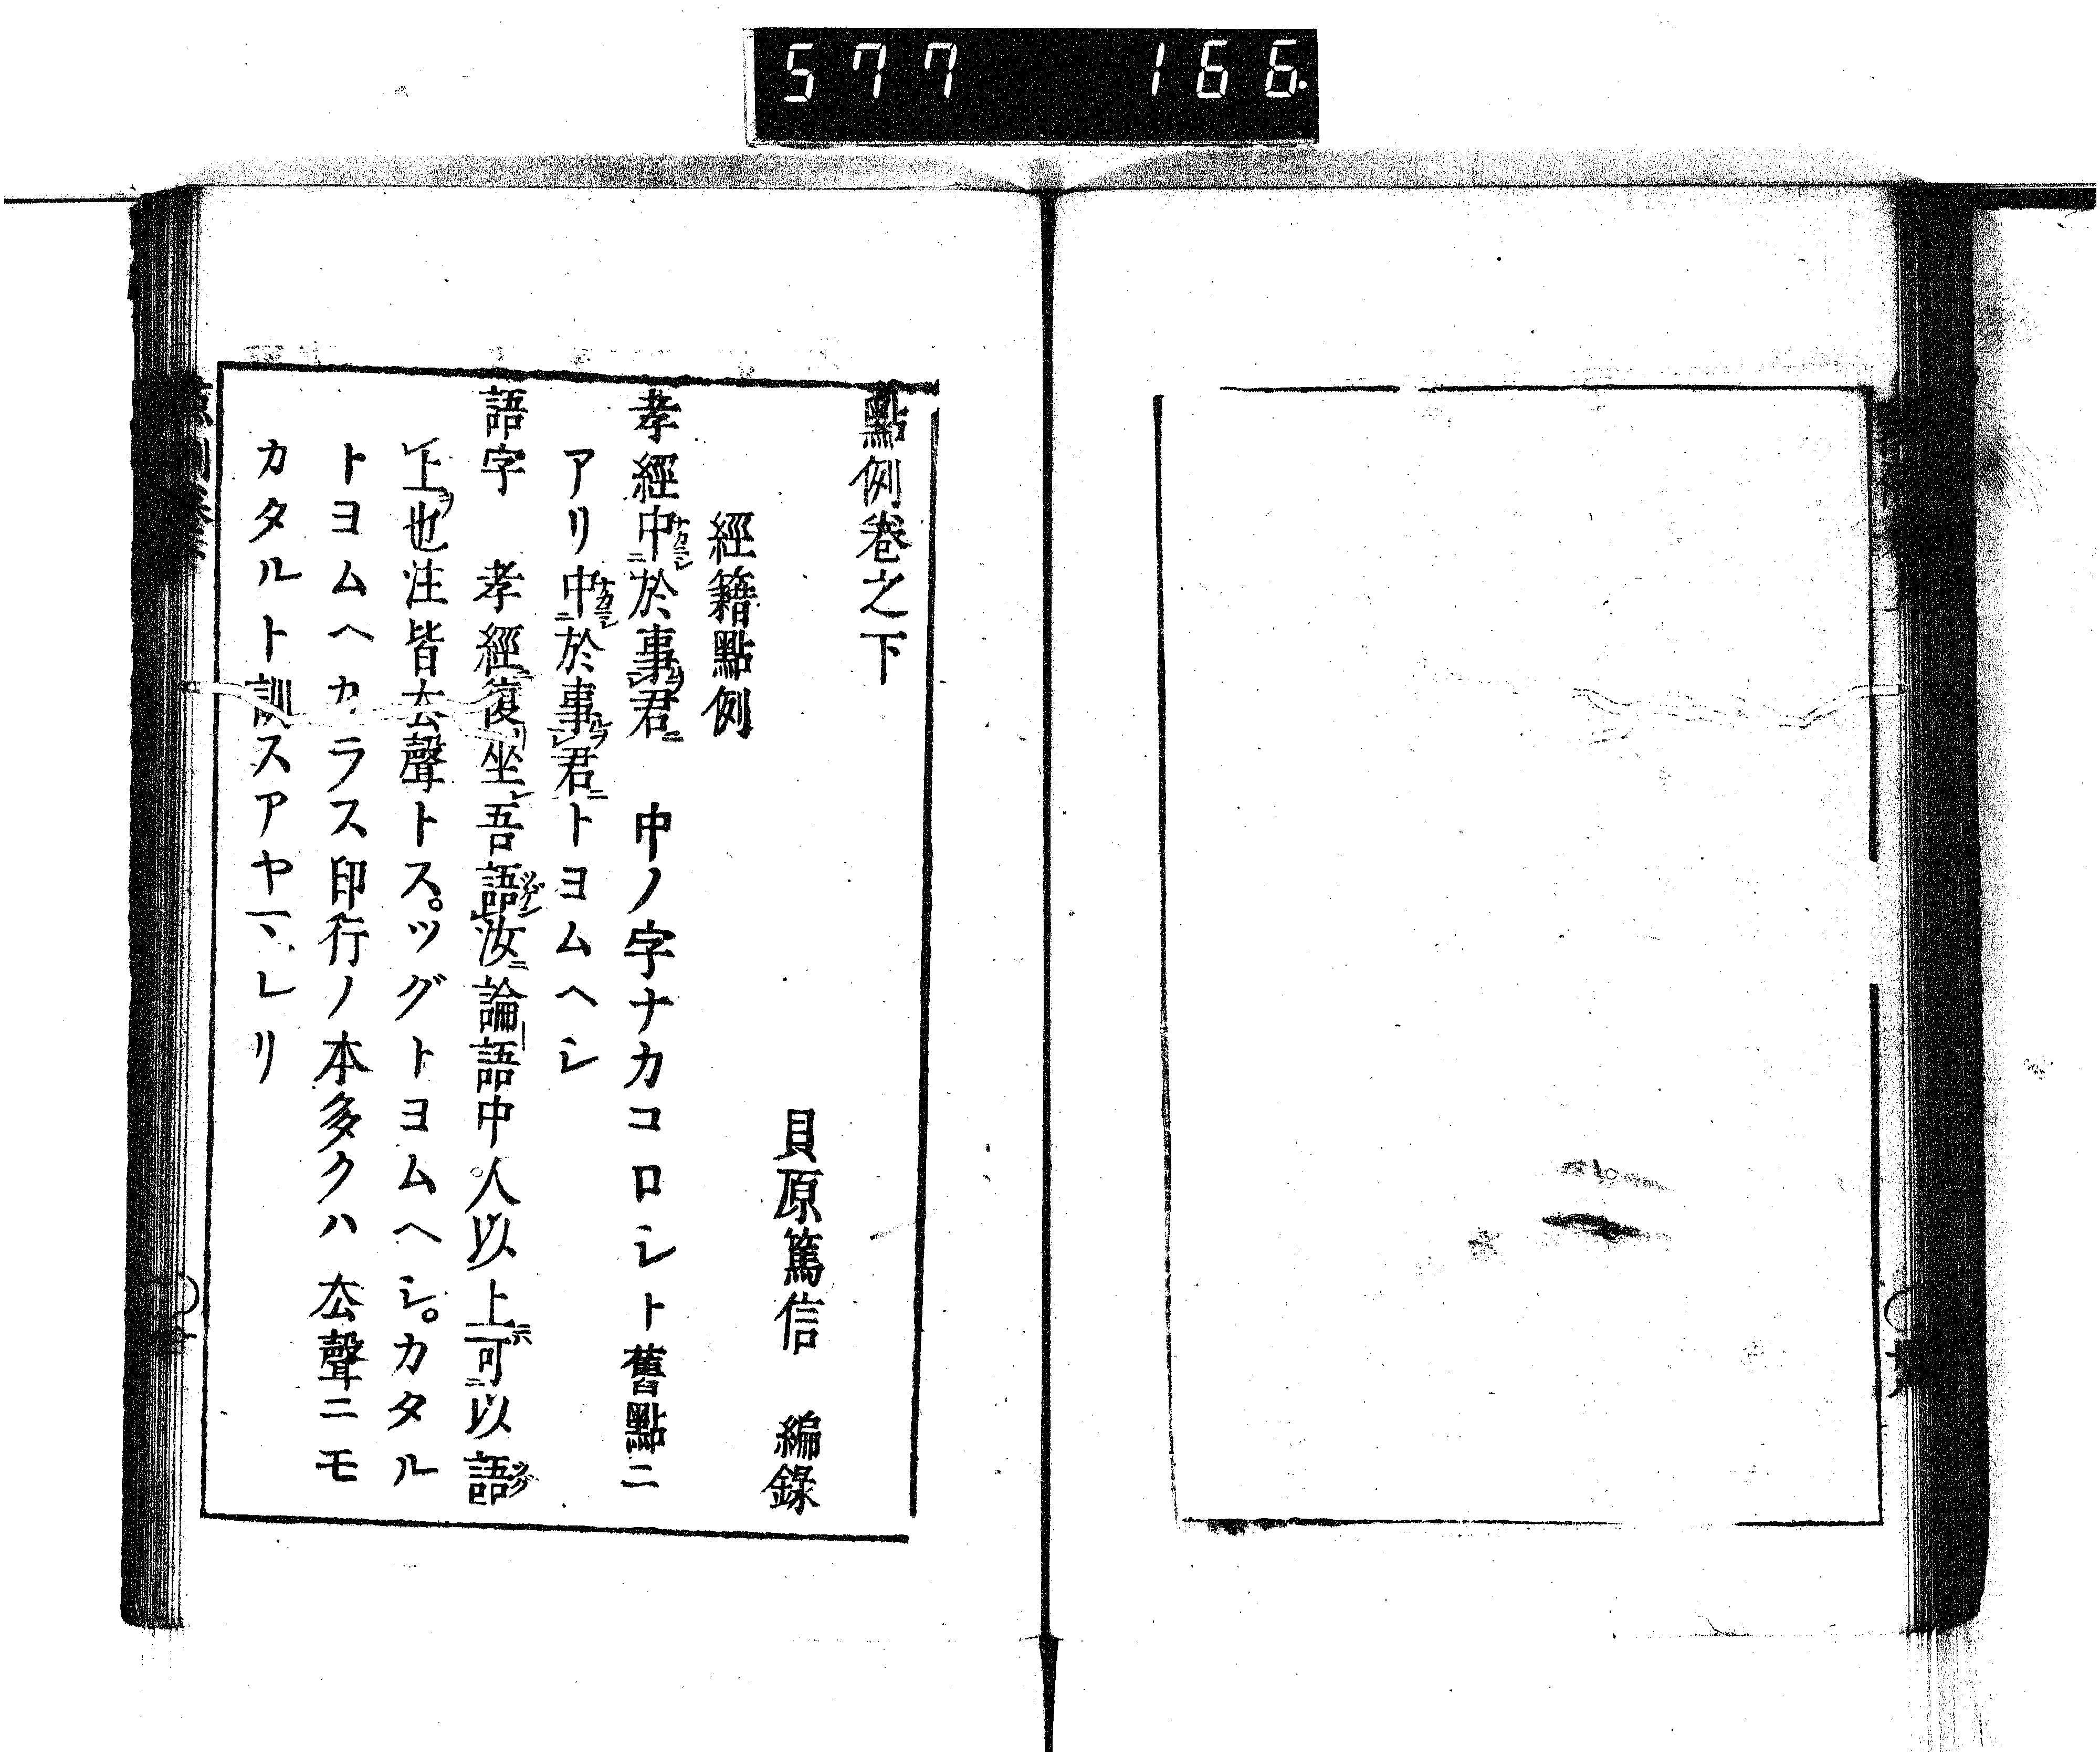 577 166.
點例卷之下
貝原篤信 編錄
經籍點例
孝經中於事君 中ノ字ナカコロシト舊點ニ
アリ中於事君トヨムヘシ
語字 孝經復坐吾語汝論語中人以上可以語
上也注皆去聲トス。ツグトヨムヘシ。カタル
トヨムヘカラス印行ノ本多クハ去聲ニモ
カタルト訓スアヤマレリ